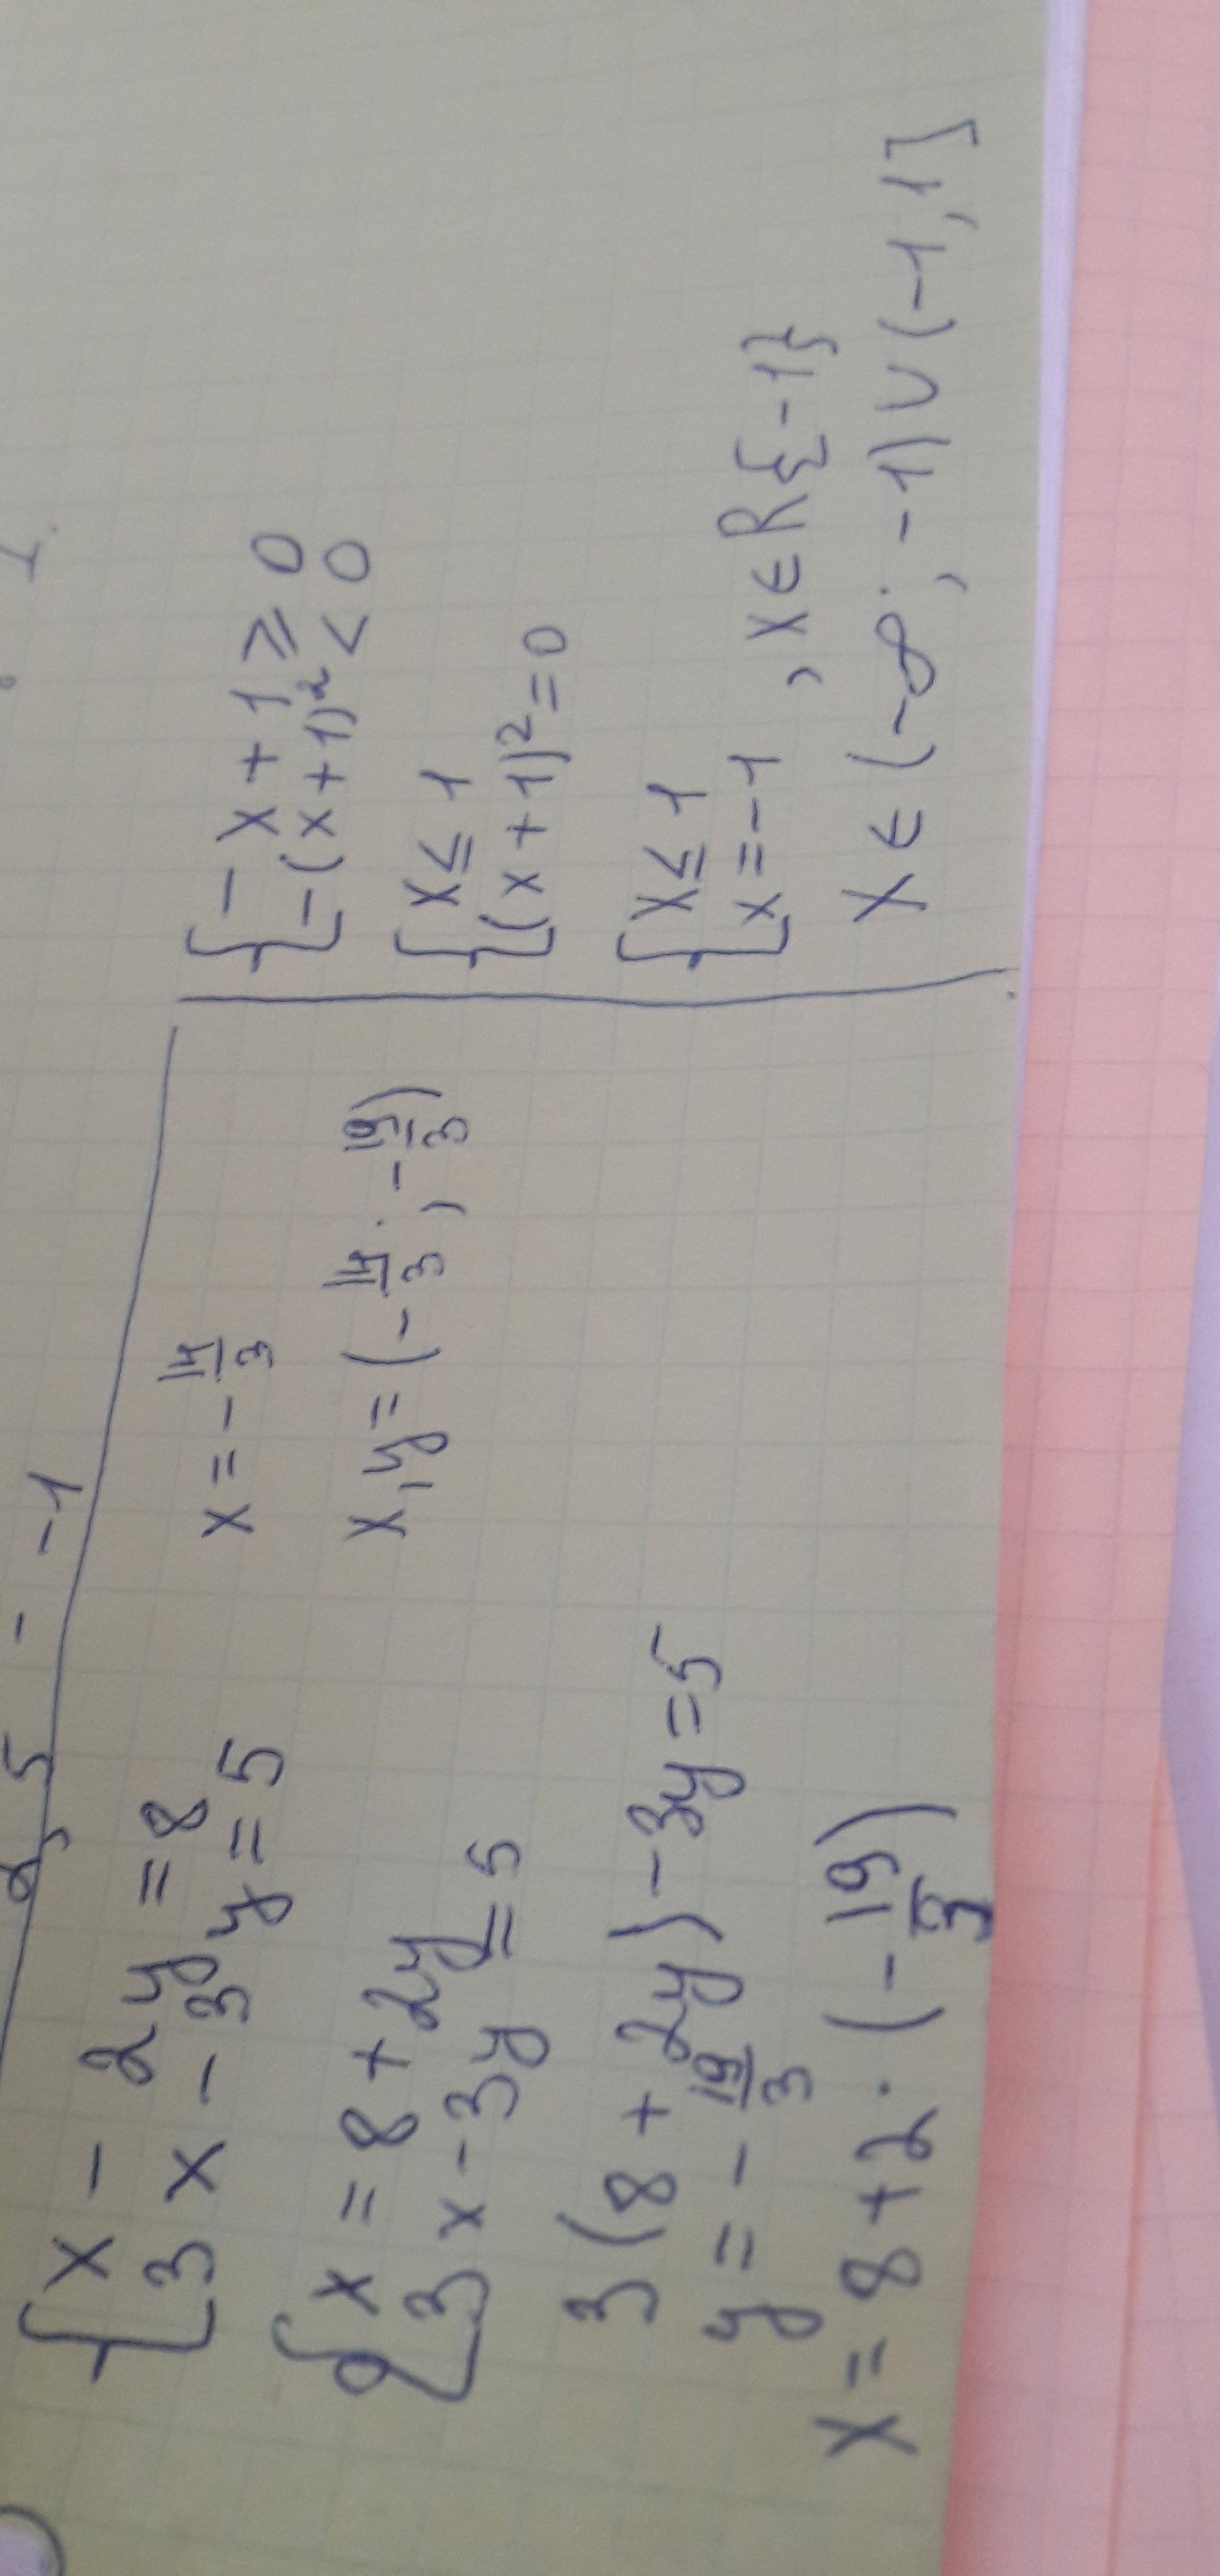 { x - 2y = 8
3x - 3y = 5
{ x = 8 + 2y
3x - 3y = 5
3(8 + 2y) - 3y = 5
y = - 19/3
x = 8 + 2 · (- 19/3)
x = - 14/3
x, y = (- 14/3 ; - 19/3)
{ - x + 1 ≥ 0
-(x + 1)² < 0
{ x ≤ 1
(x + 1)² = 0
{ x ≤ 1
x = -1 , x ∈ R{-1}
x ∈ (-∞ ; -1) ∪ (-1, 1]